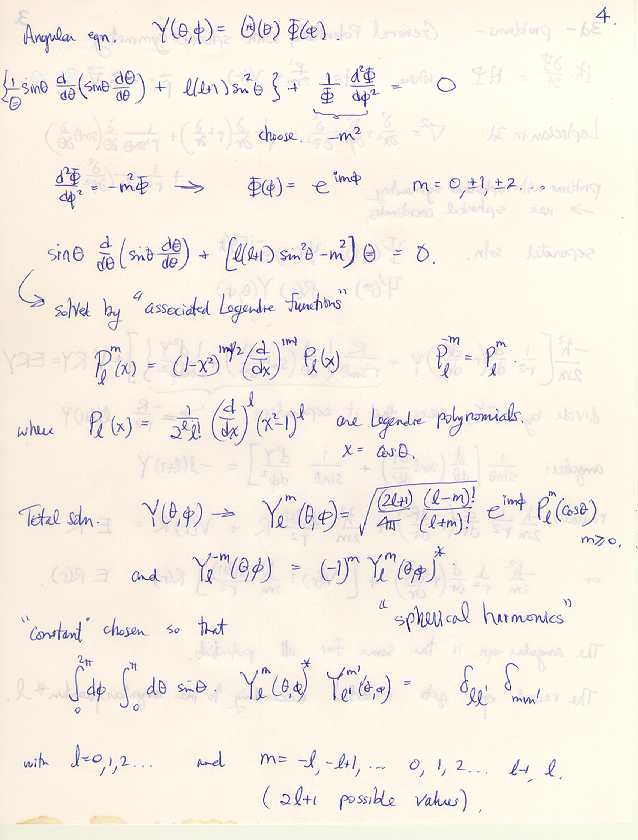 4.
Angular eqn. Y(θ,φ) = Θ(θ) Φ(φ).
{1/Θ sinθ d/dθ (sinθ dΘ/dθ) + l(l+1) sin²θ } + 1/Φ d²Φ/dφ² = 0
choose -m²
d²Φ/dφ² = -m²Φ → Φ(φ) = e^{imφ} m = 0, ±1, ±2 ...
sinθ d/dθ (sinθ dΘ/dθ) + [l(l+1) sin²θ - m²] Θ = 0.
solved by "associated Legendre functions"
P_l^m(x) = (1-x²)^{|m|/2} (d/dx)^{|m|} P_l(x) P_l^{-m} = P_l^m.
where P_l(x) = 1/(2^l l!) (d/dx)^l (x²-1)^l are Legendre polynomials.
x = cosθ.
Total soln. Y(θ,φ) → Y_l^m(θ,φ) = √((2l+1)/4π (l-m)!/(l+m)!) e^{imφ} P_l^m(cosθ)
m≥0.
and Y_l^{-m}(θ,φ) = (-1)^m Y_l^m(θ,φ)*.
"spherical harmonics"
"constant" chosen so that
∫_0^{2π} dφ ∫_0^π dθ sinθ. Y_l^m(θ,φ)* Y_{l'}^{m'}(θ,φ) = δ_{ll'} δ_{mm'}
with l=0,1,2... and m = -l, -l+1, ... 0, 1, 2... l-1, l.
(2l+1 possible values).